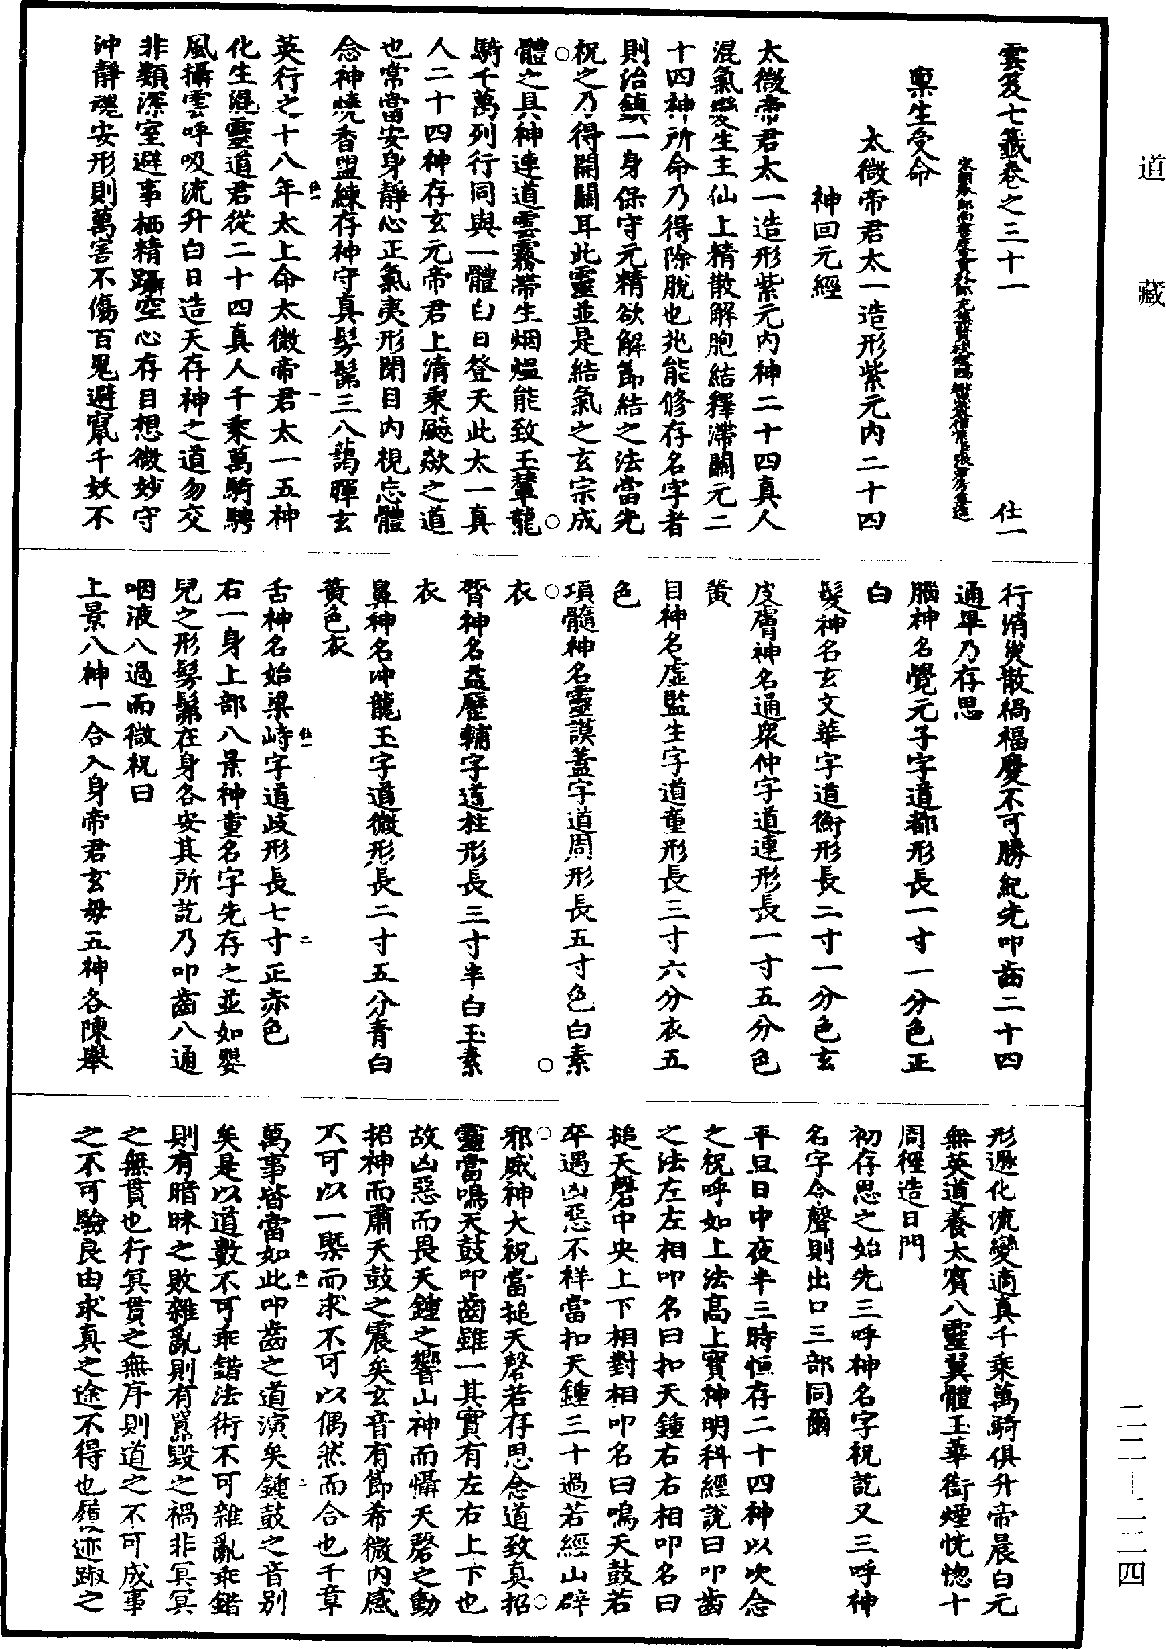 道藏
雲笈七籤卷之三十一 仕一
稟生受命
太微帝君太一造形紫元內二十四
神回元經
太微帝君太一造形紫元內神二十四真人
混氣變生主仙上精散解胞結釋滯關元二
十四神所命乃得除脫也兆能修存名字者
則治鎮一身保守元精欲解節結之法當先
祝之乃得開關耳此靈並是結氣之玄宗成
體之具神連道雲霧帶生烟熅能致玉輦龍
騎千萬列行同與一體白日登天此太一真
人二十四神存玄元帝君上清乘飈歘之道
也常當安身靜心正氣夷形閉目內視忘體
念神燒香盥練存神守真髣髴三八藹暉玄
英行之十八年太上命太微帝君太一五神
化生混靈道君從二十四真人千乘萬騎騁
風攝雲呼吸流升白日造天存神之道勿交
非類深室避事栖精躡空心存目想微妙守
沖靜魂安形則萬害不傷百鬼避竄千妖不
行消災散禍福慶不可勝紀先叩齒二十四
通畢乃存思
腦神名覺元子字道都形長一寸一分色正
白
髮神名玄文華字道衡形長二寸一分色玄
皮膚神名通眾仲字道連形長一寸五分色
黃
目神名虛監生字道童形長三寸六分衣五
色
項髓神名靈謨蓋字道周形長五寸色白素
衣
膂神名益歷輔字道柱形長三寸半白玉素
衣
鼻神名沖龍玉字道微形長二寸五分青白
黃色衣
舌神名始梁峙字道歧形長七寸正赤色
右一身上部八景神童名字先存之並如嬰
兒之形髣髴在身各安其所訖乃叩齒八通
咽液八過而微祝曰
上景八神一合入身帝君玄母五神各陳舉
形遯化流變適真千乘萬騎俱升帝晨白元
無英道養太賓八靈翼體玉華銜煙恍惚十
周徑造日門
初存思之始先三呼神名字祝訖又三呼神
名字令聲則出口三部同爾
平旦日中夜半三時恒存二十四神以次念
之祝呼如上法高上寶神明科經說曰叩齒
之法左左相叩名曰扣天鍾右右相叩名曰
搥天磬中央上下相對相叩名曰鳴天鼓若
卒遇凶惡不祥當扣天鍾三十過若經山辟
邪威神大祝當搥天磬若存思念道致真招
靈當鳴天鼓叩齒雖一其實有左右上下也
故凶惡而畏天鍾之響山神而懾天磬之動
招神而肅天鼓之震矣玄音有節希微內感
不可以一槩而求不可以偶然而合也千章
萬事皆當如此叩齒之道演矣鍾鼓之音別
矣是以道數不可乖錯法術不可雜亂乖錯
則有暗昧之敗雜亂則有嚚毀之禍非冥冥
之無貫也行冥貫之無序則道之不可成事
之不可驗良由求真之途不得也履迹踧之
二二—二二四